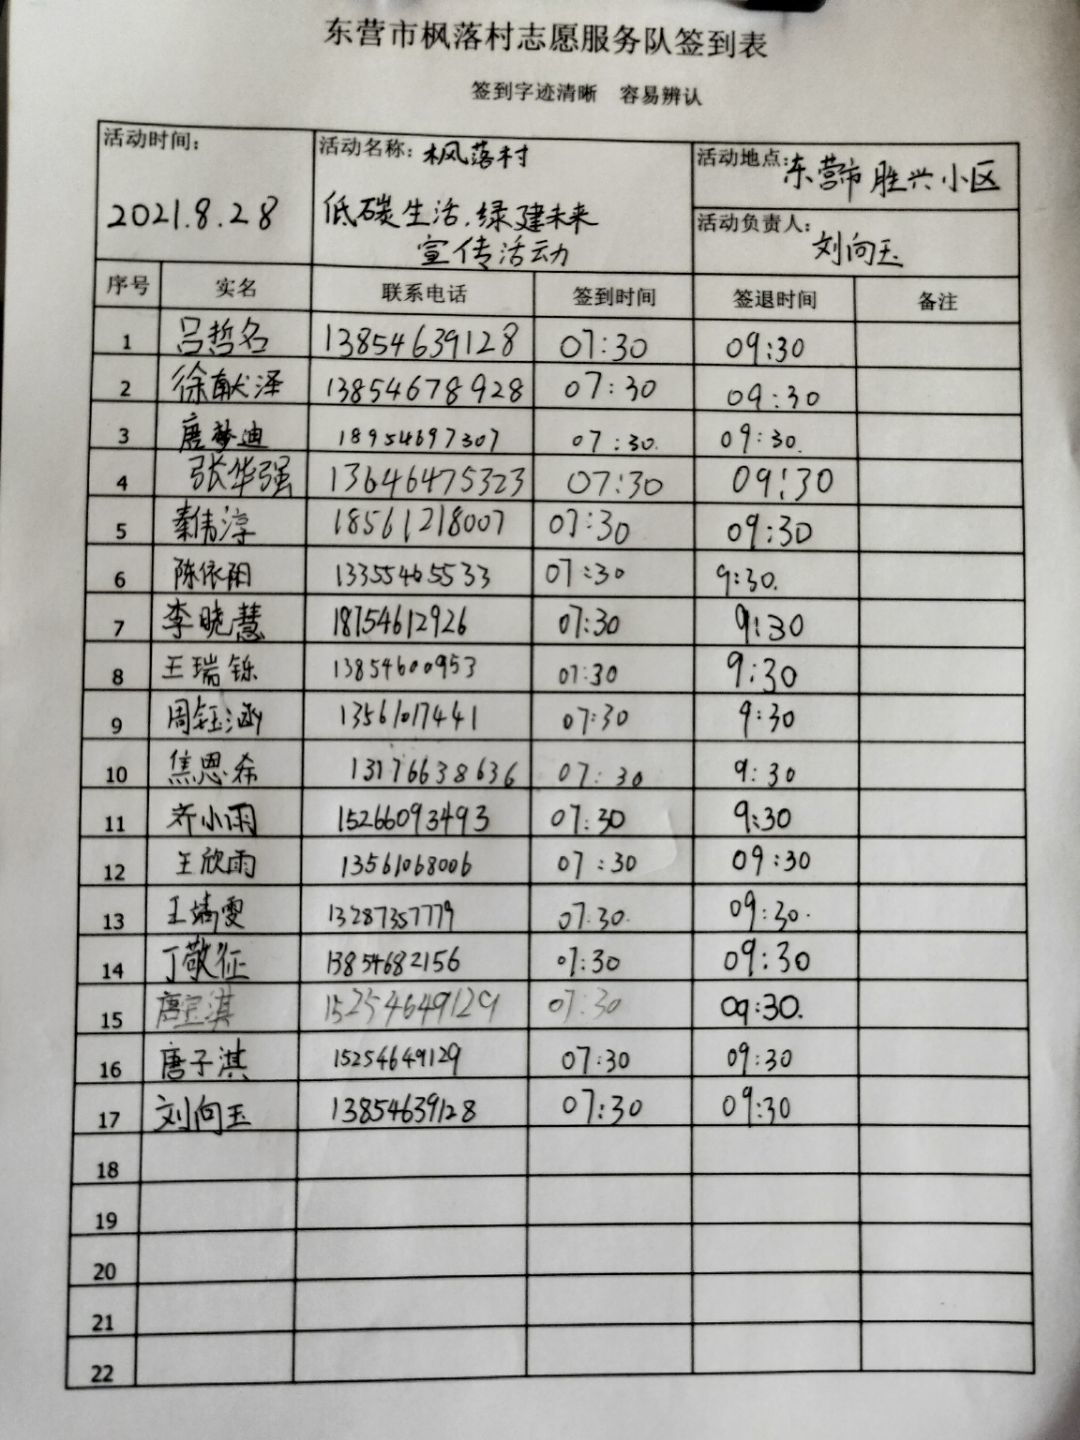 东营市枫落村志愿服务队签到表
签到字迹清晰 容易辨认
活动时间：
2021.8.28
活动名称：枫落村
低碳生活.绿建未来
宣传活动
活动地点：东营市胜兴小区
活动负责人：刘向玉
序号 实名 联系电话 签到时间 签退时间 备注
1 吕哲名 13854639128 07:30 09:30
2 徐献泽 13854678928 07:30 09:30
3 唐梦迪 18954697307 07:30. 09:30.
4 张华强 13646475323 07:30 09:30
5 秦伟淳 18561218007 07:30 09:30
6 陈依阳 13355465533 07:30 9:30.
7 李晓慧 18754612926 07:30 9:30
8 王瑞铄 13854600953 07:30 9:30
9 周钰涵 13561017441 07:30 9:30
10 焦恩希 13176638636 07:30 9:30
11 齐小雨 15266093493 07:30 9:30
12 王欣雨 13561068006 07:30 09:30
13 王婧雯 13287357779 07:30. 09:30.
14 丁敬征 13854682156 07:30 09:30
15 唐 淇 15254649129 07:30 09:30.
16 唐子淇 15254649129 07:30 09:30
17 刘向玉 13854639128 07:30 09:30
18
19
20
21
22